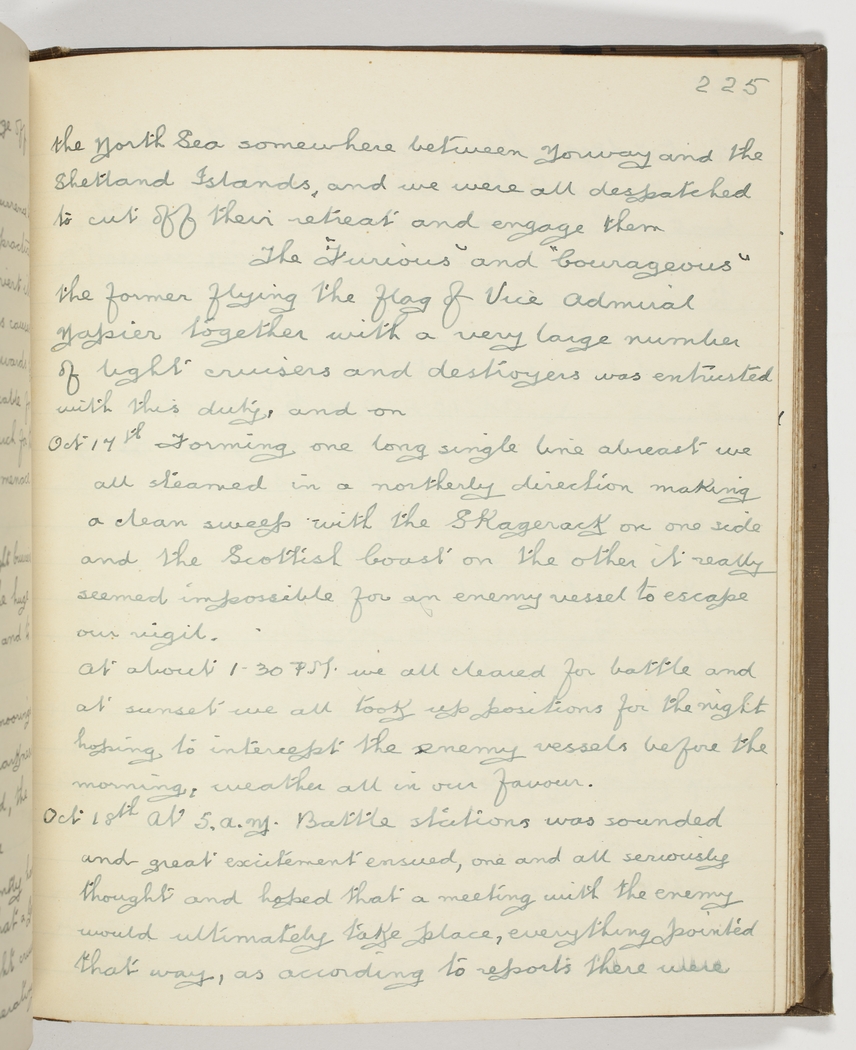 225
the North Sea somewhere between Norway and the
Shetland Islands, and we were all despatched
to cut off their retreat and engage them
The "Furious" and "Courageous"
the former flying the flag of Vice Admiral
Napier together with a very large number
of light cruisers and destroyers was entrusted
with this duty, and on
Oct 17th Forming one long single line abreast we
all steamed in a northerly direction making
a clean sweep with the Skagerack on one side
and the Scottish Coast on the other it really
seemed impossible for an enemy vessel to escape
our vigil.
At about 1-30 P.M. we all cleared for battle and
at sunset we all took up positions for the night
hoping to intercept the enemy vessels before the
morning, weather all in our favour.
Oct 18th At 5.a.m. Battle stations was sounded
and great excitement ensued, one and all seriously
thought and hoped that a meeting with the enemy
would ultimately take place, everything pointed
that way, as according to reports there were